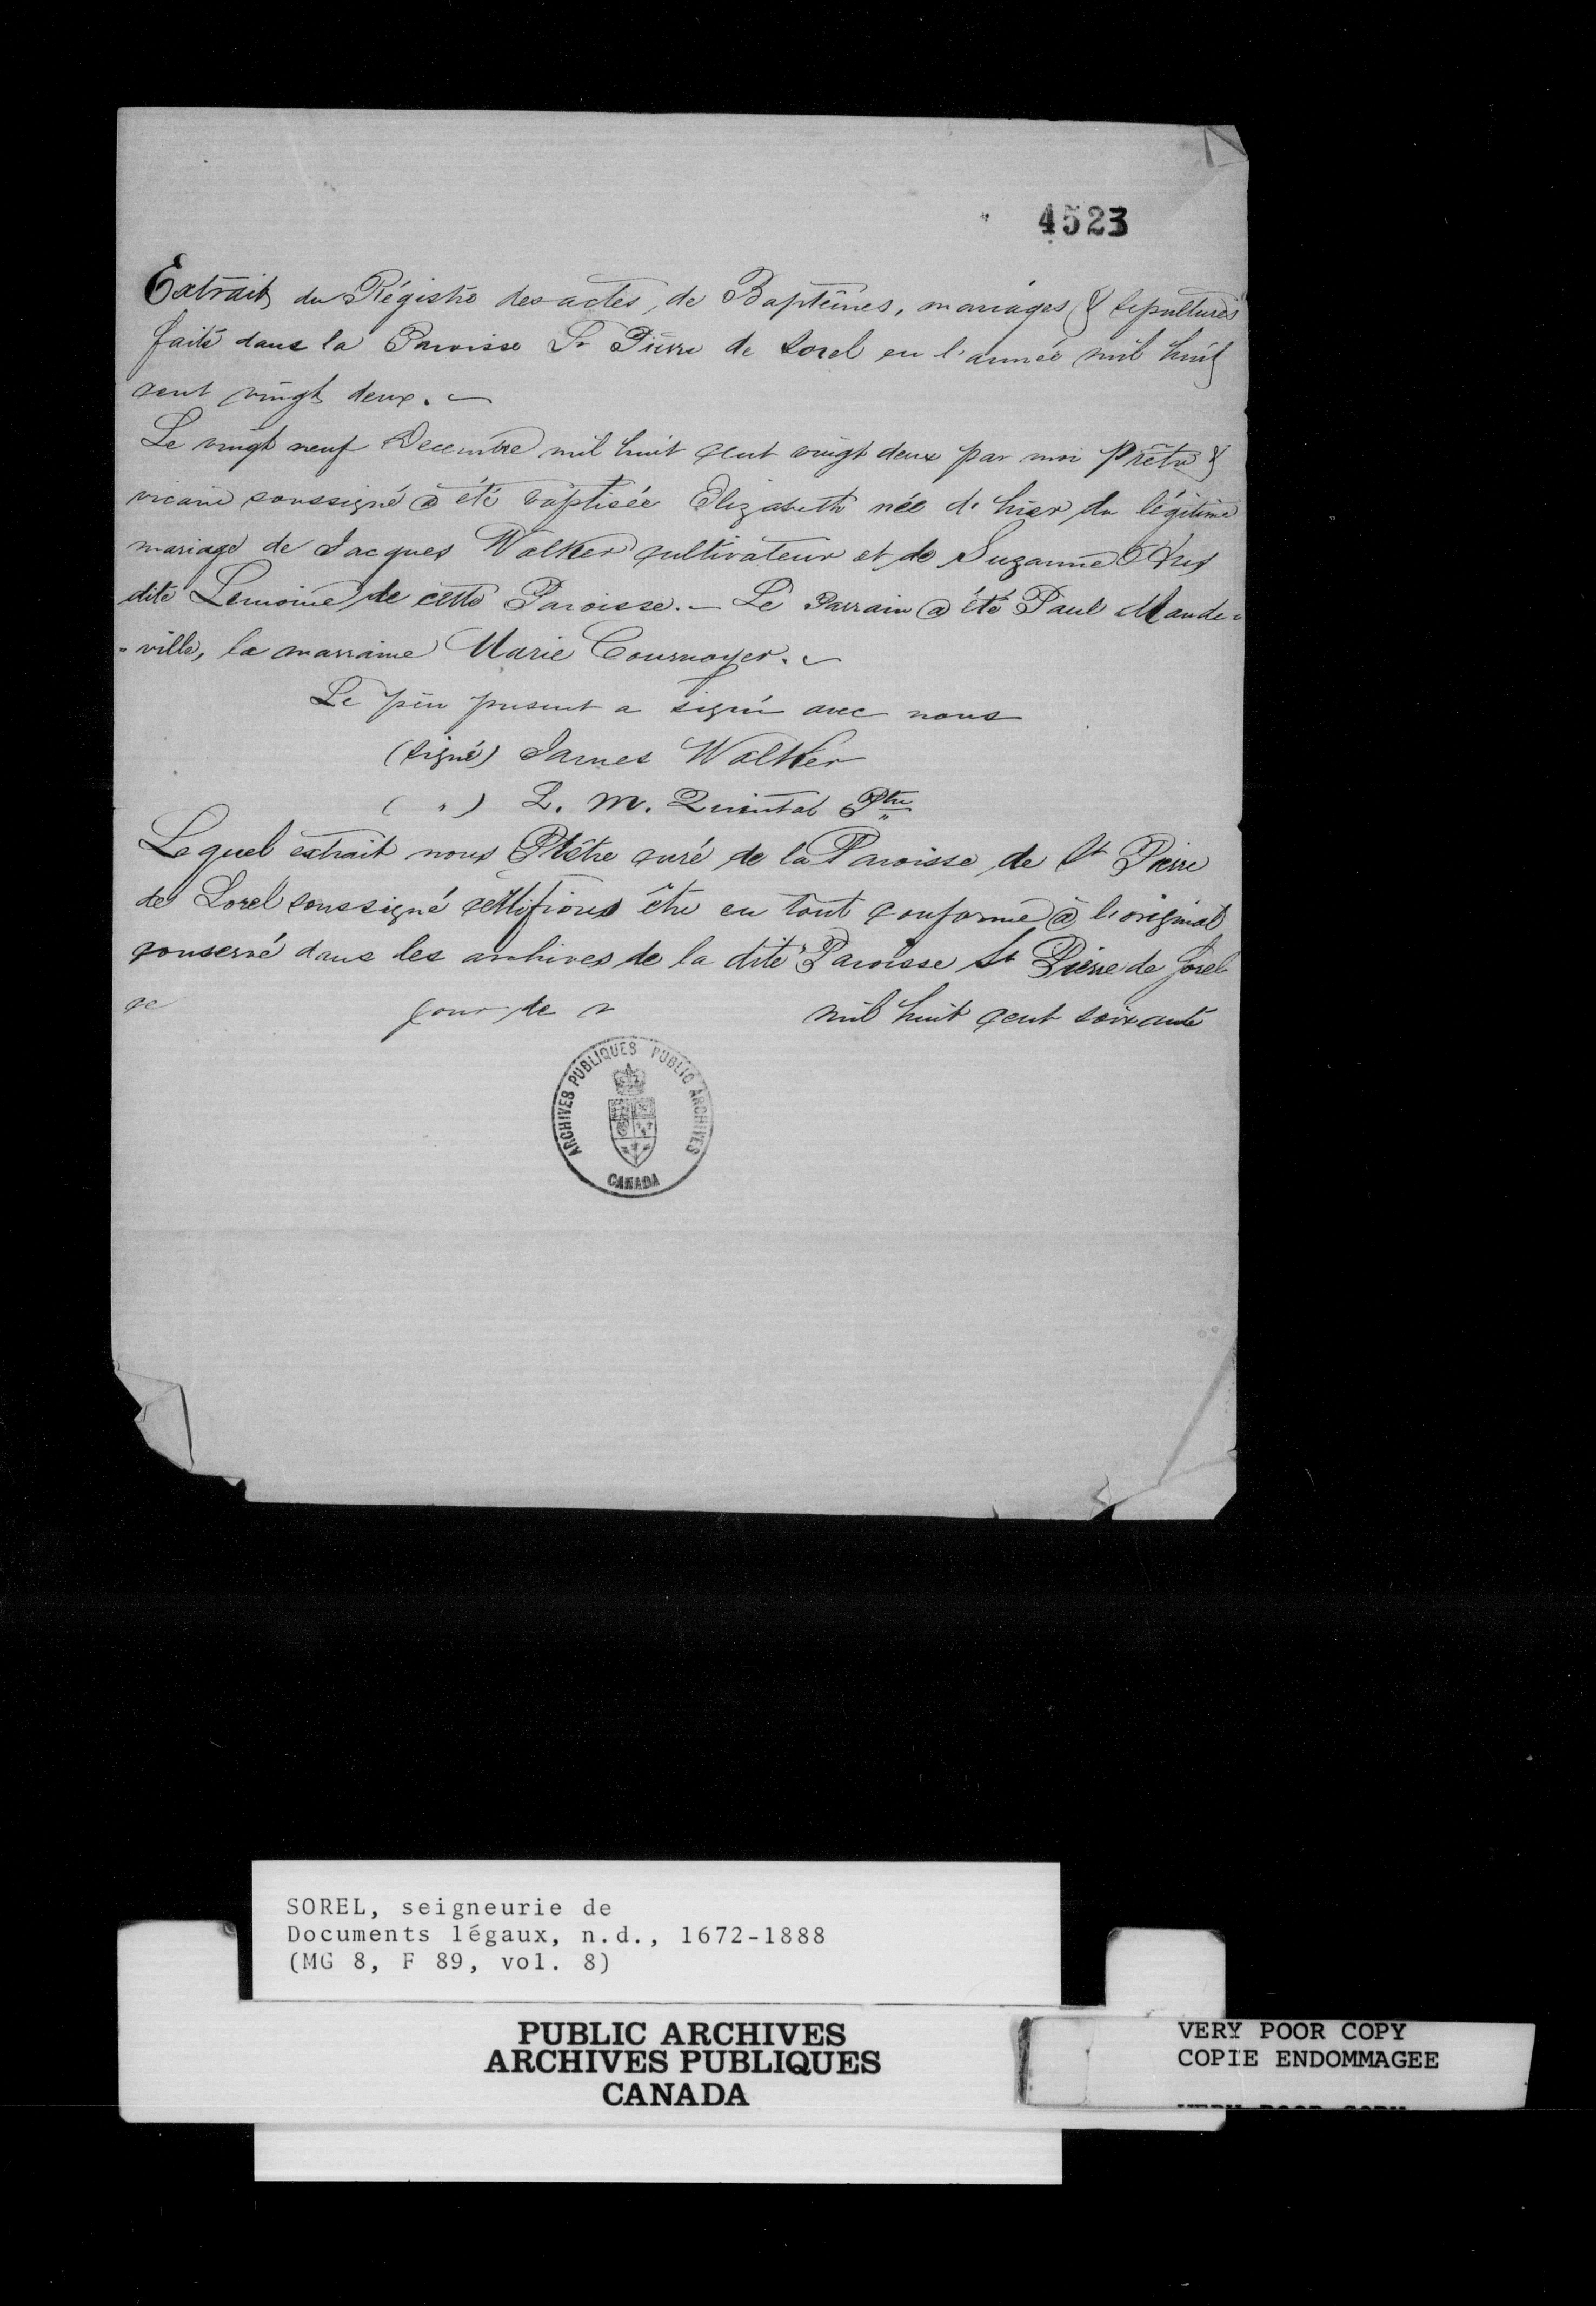 4523
Extrait du Régistre des actes de Baptêmes, mariages & sepultures
faits dans la Paroisse St Pierre de Sorel en l'année mil huit
cent vingt deux.
Le vingt neuf Decembre mil huit cent vingt deux par moi Prêtre &
vicaire soussigné a été baptisée Elizabeth née d'hier du légitime
mariage de Jacques Walker cultivateur et de Suzanne
dite Lemoine de cette Paroisse. - Le Parrain a été Paul Mande-
-ville, la marraine Marie Cournoyer. -
Le père present a signé avec nous
(signé) James Walker
( " ) L. M. Quintal Ptre
Lequel extrait nous Prêtre curé de la Paroisse de St Pierre
de Sorel soussigné certifions être en tout conforme à l'original
conservé dans les archives de la dite Paroisse St Pierre de Sorel
ce jour de mil huit cent soixante
ARCHIVES PUBLIQUES PUBLIC ARCHIVES
CANADA
SOREL, seigneurie de
Documents légaux, n.d., 1672-1888
(MG 8, F 89, vol. 8)
PUBLIC ARCHIVES
ARCHIVES PUBLIQUES
CANADA
VERY POOR COPY
COPIE ENDOMMAGEE
VERY POOR COPY